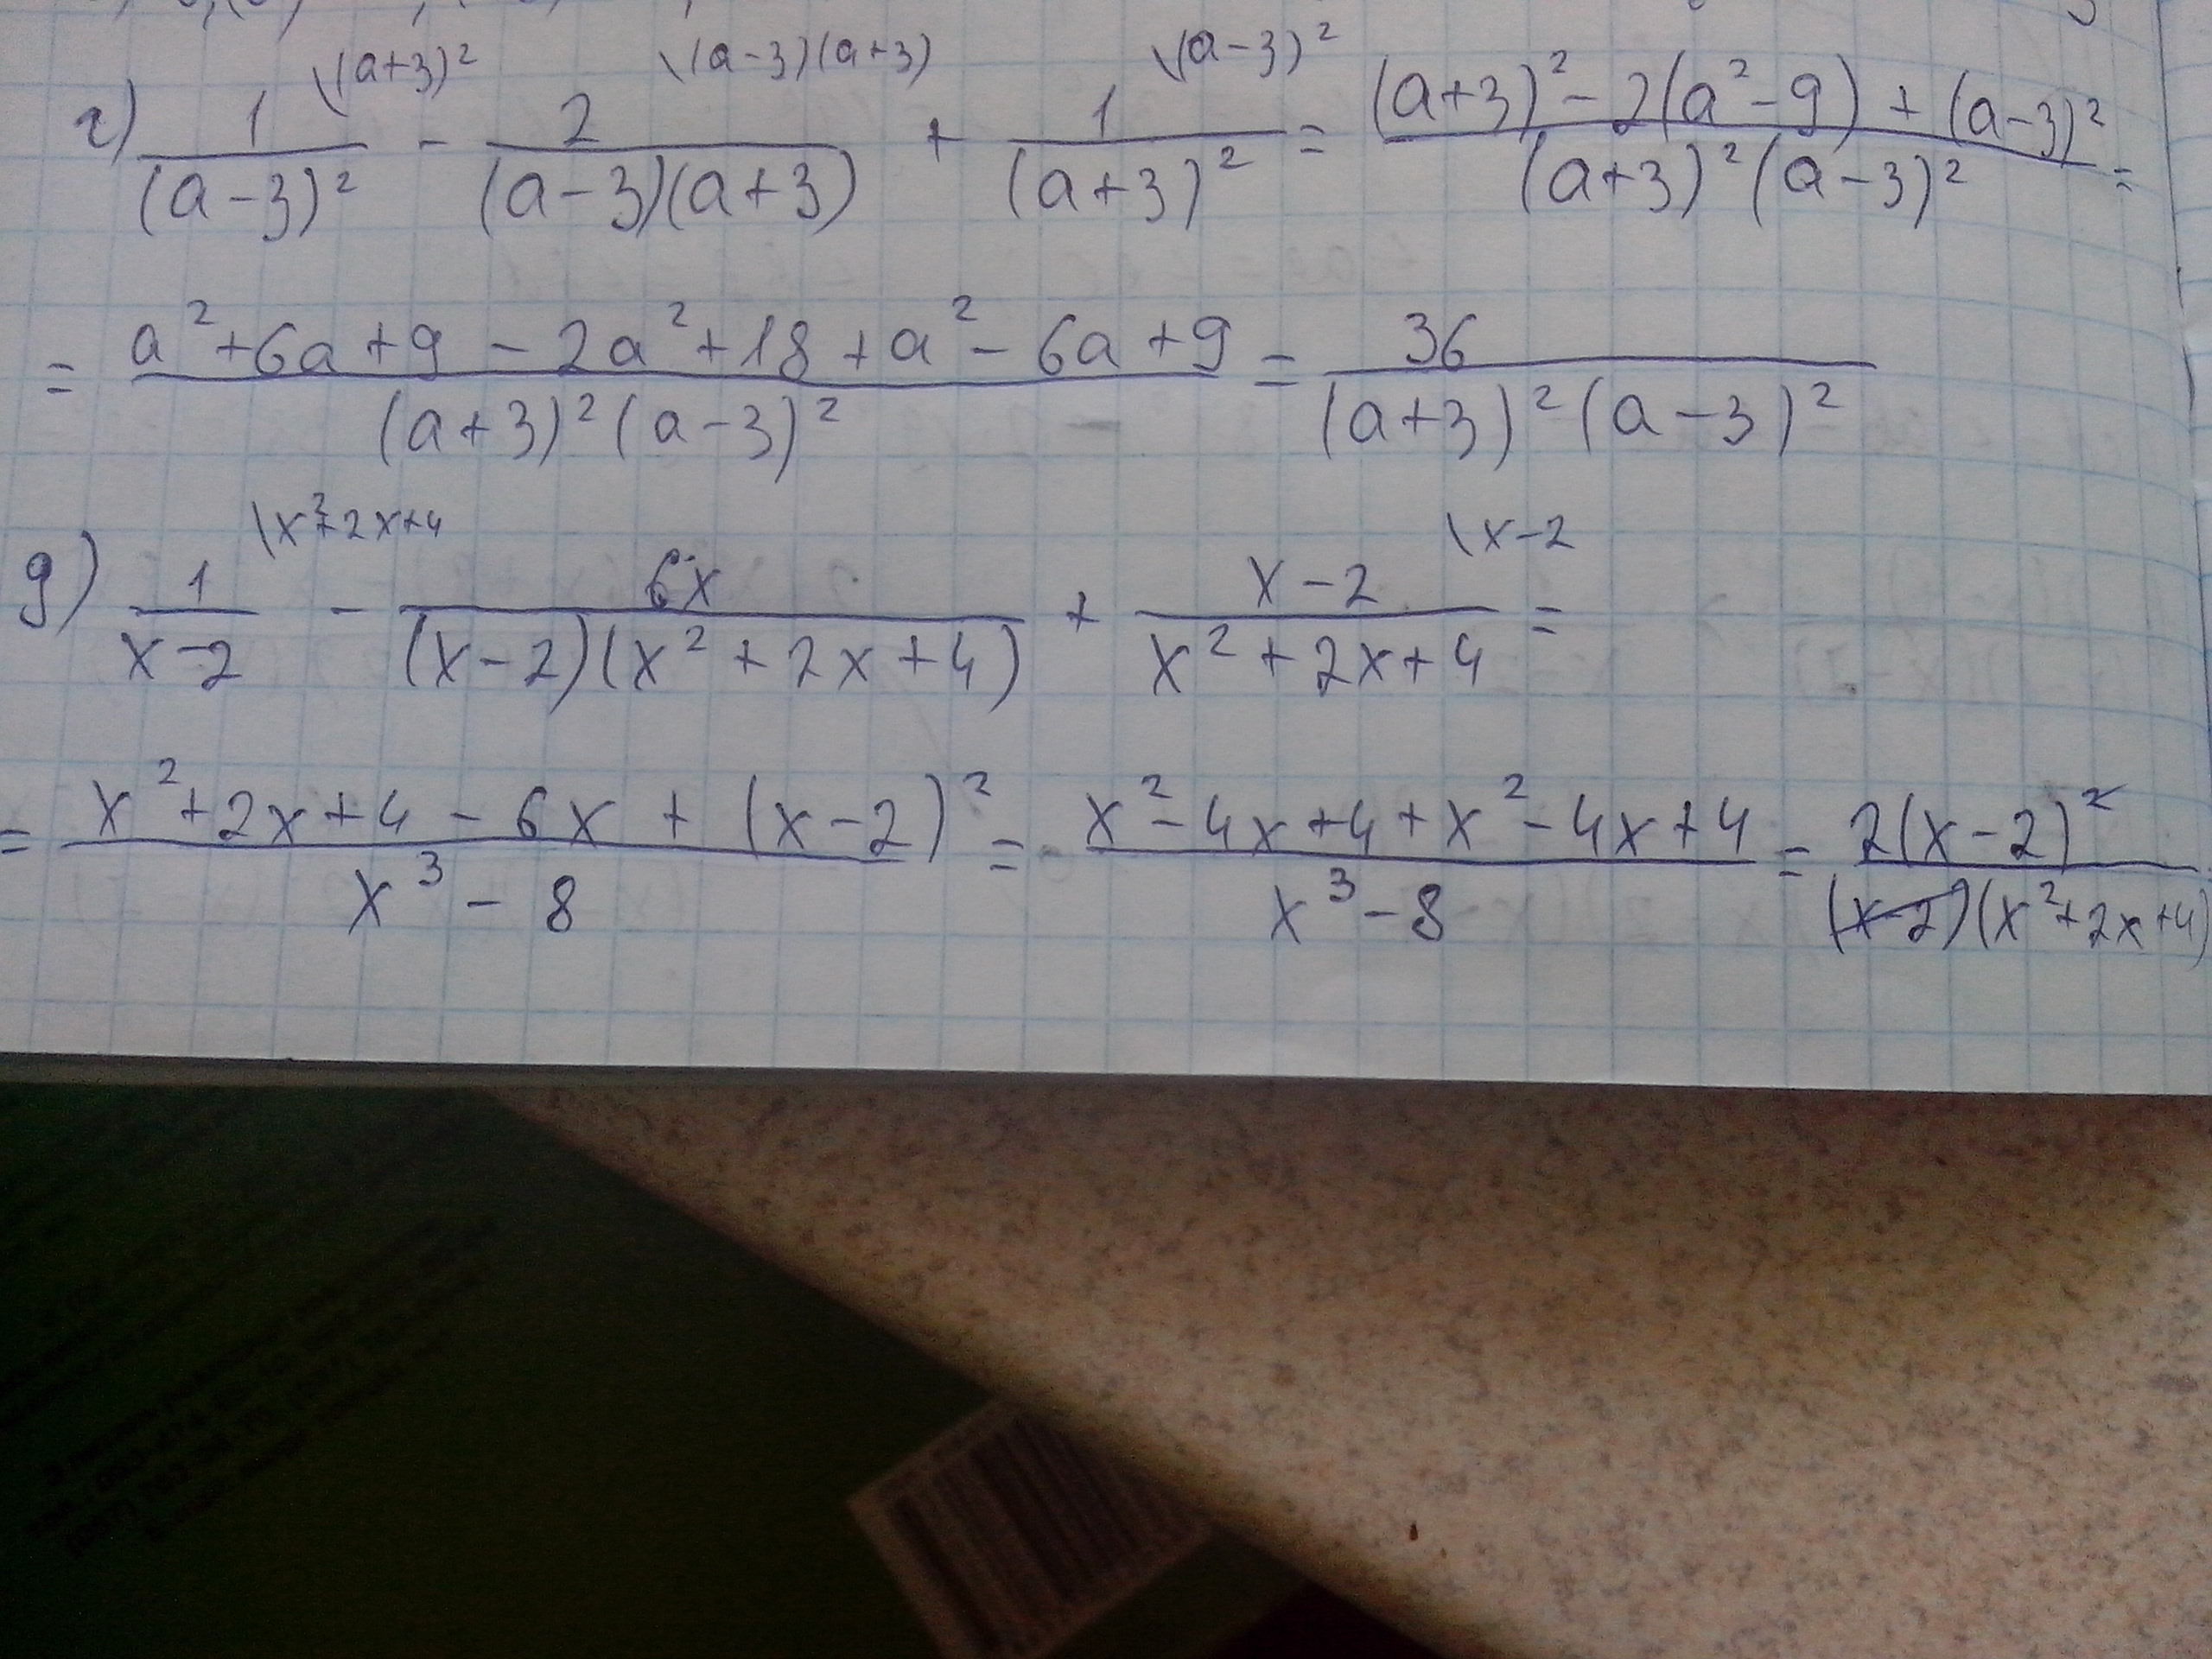 \(a+3)² \(a-3)(a+3) \(a-3)²
г) 1/(a-3)² - 2/((a-3)(a+3)) + 1/(a+3)² = ((a+3)² - 2(a²-9) + (a-3)²)/((a+3)²(a-3)²) =
= (a²+6a+9 - 2a²+18 + a² - 6a + 9)/((a+3)²(a-3)²) = 36/((a+3)²(a-3)²)
\x²+2x+4 \x-2
g) 1/(x-2) - 6x/((x-2)(x²+2x+4)) + (x-2)/(x²+2x+4) =
= (x²+2x+4 - 6x + (x-2)²)/(x³-8) = (x²-4x+4+x²-4x+4)/(x³-8) = 2(x-2)²/((x-2)(x²+2x+4))